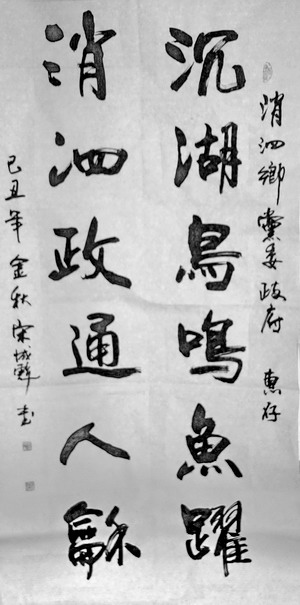 消泗鄉黨委政府 惠存
沉湖鳥鳴魚躍
消泗政通人龢
己丑年金秋 宋城